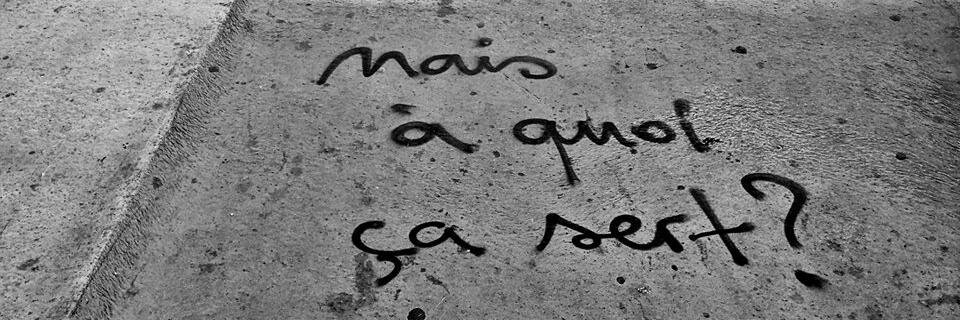 mais
à quoi
ça sert?